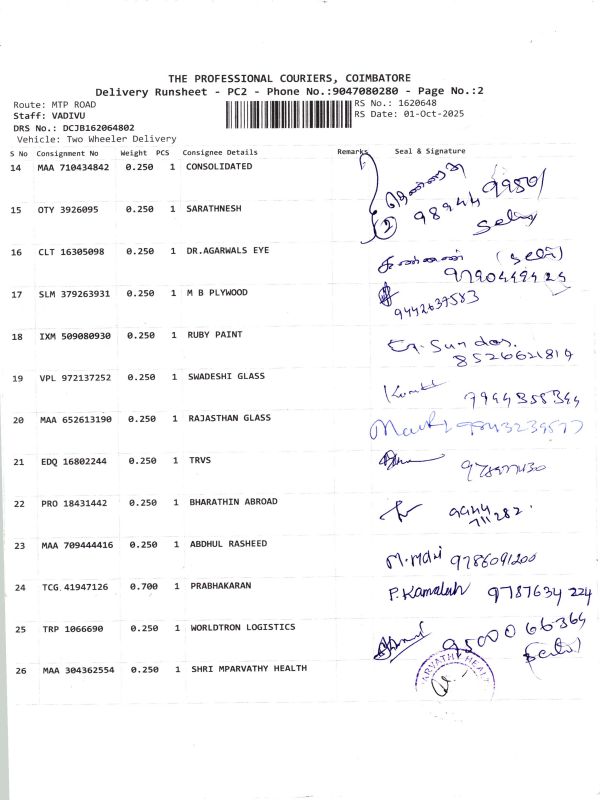 THE PROFESSIONAL COURIERS, COIMBATORE
Delivery Runsheet - PC2 - Phone No.:9047080280 - Page No.:2
Route: MTP ROAD
RS No.: 1620648
Staff: VADIVU
RS Date: 01-Oct-2025
DRS No.: DCJB162064802
Vehicle: Two Wheeler Delivery
S No Consignment No Weight PCS Consignee Details Remarks Seal & Signature
14 MAA 710434842 0.250 1 CONSOLIDATED
15 OTY 3926095 0.250 1 SARATHNESH
2
16 CLT 16305098 0.250 1 DR.AGARWALS EYE
17 SLM 379263931 0.250 1 M B PLYWOOD
9442639583
18 IXM 509080930 0.250 1 RUBY PAINT
8526621814
19 VPL 972137252 0.250 1 SWADESHI GLASS
20 MAA 652613190 0.250 1 RAJASTHAN GLASS
21 EDQ 16802244 0.250 1 TRVS
22 PRO 18431442 0.250 1 BHARATHIN ABROAD
9944
711282
23 MAA 709444416 0.250 1 ABDHUL RASHEED
M.Mani 9786091200
24 TCG 41947126 0.700 1 PRABHAKARAN
P.Kamalah 9787634 224
25 TRP 1066690 0.250 1 WORLDTRON LOGISTICS
95000 66364
26 MAA 304362554 0.250 1 SHRI MPARVATHY HEALTH